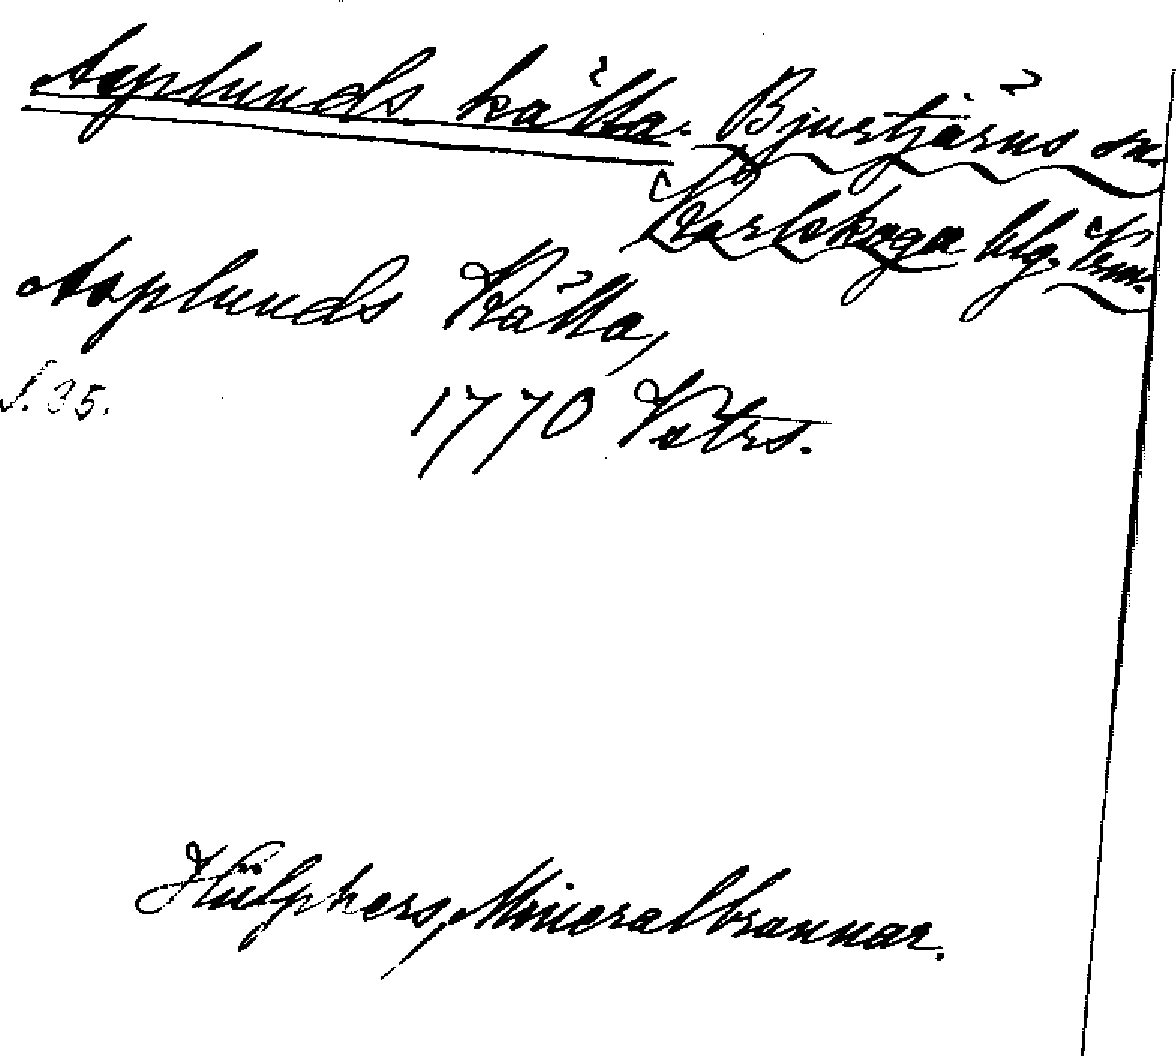 Asplunds källa. Bjurtjärns sn.
Karlskoga blg. Vrm.
Asplunds Källa,
S. 35.
1770 Votrs.
Hülphers, Mineralbrannar.